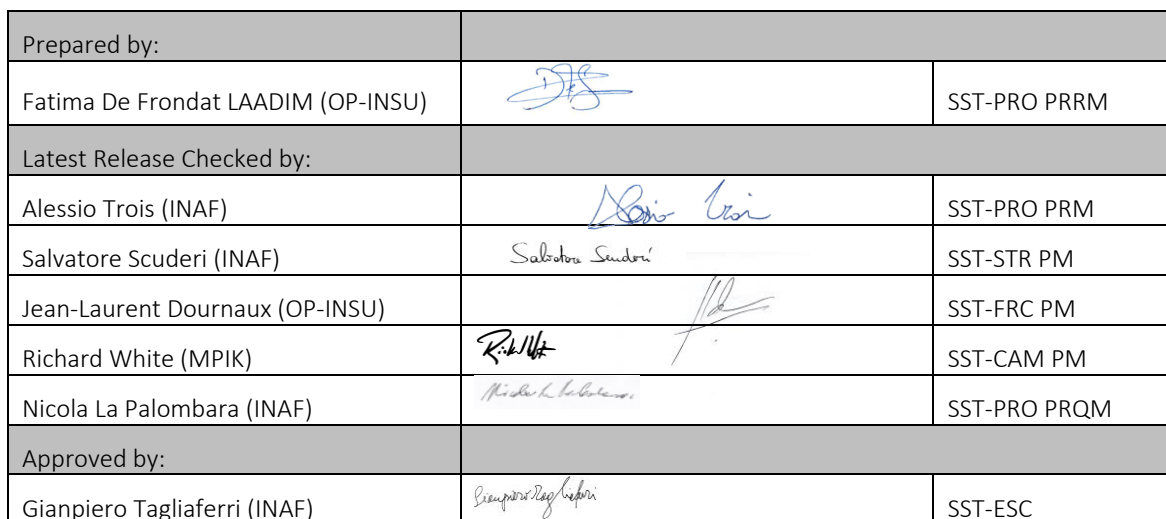 Prepared by:
Fatima De Frondat LAADIM (OP-INSU) SST-PRO PRRM
Latest Release Checked by:
Alessio Trois (INAF) Alessio Trois SST-PRO PRM
Salvatore Scuderi (INAF) Salvatore Scuderi SST-STR PM
Jean-Laurent Dournaux (OP-INSU) SST-FRC PM
Richard White (MPIK) SST-CAM PM
Nicola La Palombara (INAF) SST-PRO PRQM
Approved by:
Gianpiero Tagliaferri (INAF) Gianpiero Tagliaferri SST-ESC